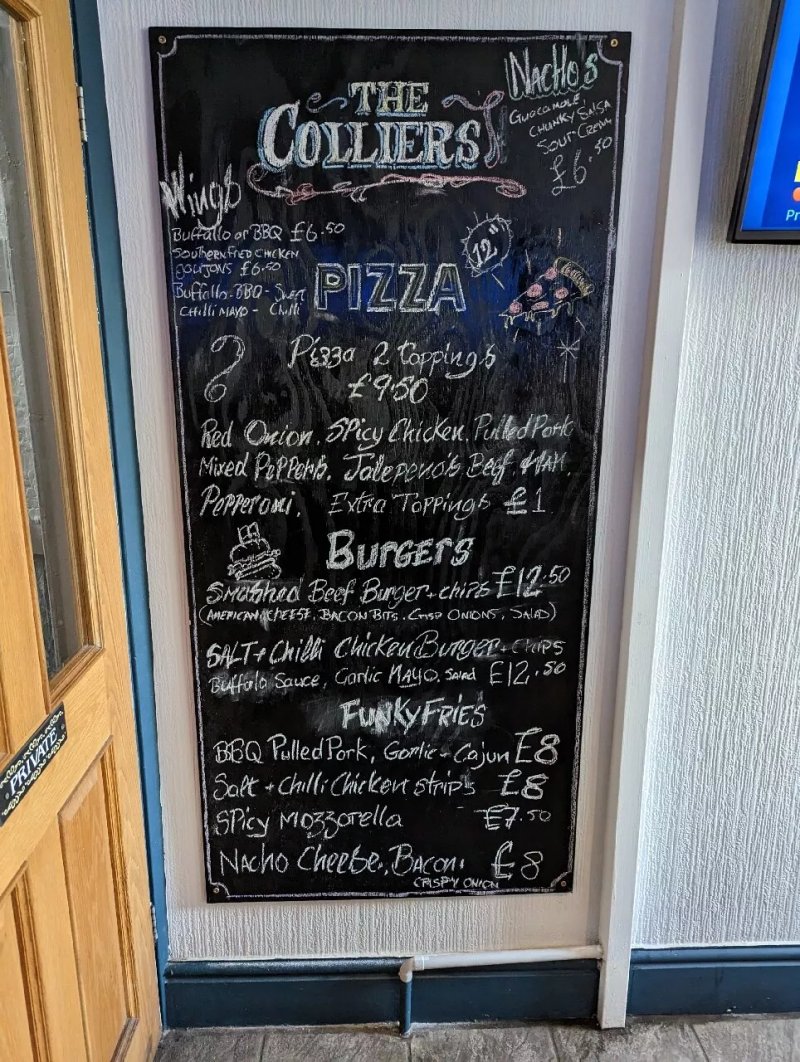 THE
COLLIERS
NACHO'S
GUACAMOLE
CHUNKY SALSA
SOUR-CREAM
£6.50
Wings
BUFFALLO OR BBQ £6.50
SOUTHERN FRIED CHICKEN
GOUJONS £6.50
BUFFALLO-BBQ - SWEET
CHILLI MAYO - CHILLI
12"
PIZZA
Pizza 2 toppings
£9.50
Red Onion, SPicy Chicken, Pulled Pork
Mixed PePPers, Jalepeno's Beef, HAM,
Pepperoni, Extra Toppings £1
BURGERS
Smashed Beef Burger + chips £12.50
(AMERICAN CHEESE, BACON BITS, CRISP ONIONS, SALAD)
SALT + Chilli Chicken Burger + CHIPS
Buffalo Sauce, Garlic MAYO, Salad £12.50
FUNKY FRIES
BBQ Pulled Pork, Garlic - Cajun £8
Salt + Chilli Chicken strips £8
SPicy mozzarella £7.50
NACHO Cheese, BACON, £8
CRISPY ONION
PRIVATE
Pr